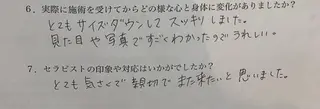 6. 実際に施術を受けてからどの様な心と身体に変化がありましたか?
とてもサイズダウンして スッキリしました。
見た目や写真ですごくわかったので うれしい。
7. セラピストの印象や対応はいかがでしたか?
とても気さくで 親切で また来たいと 思いました。